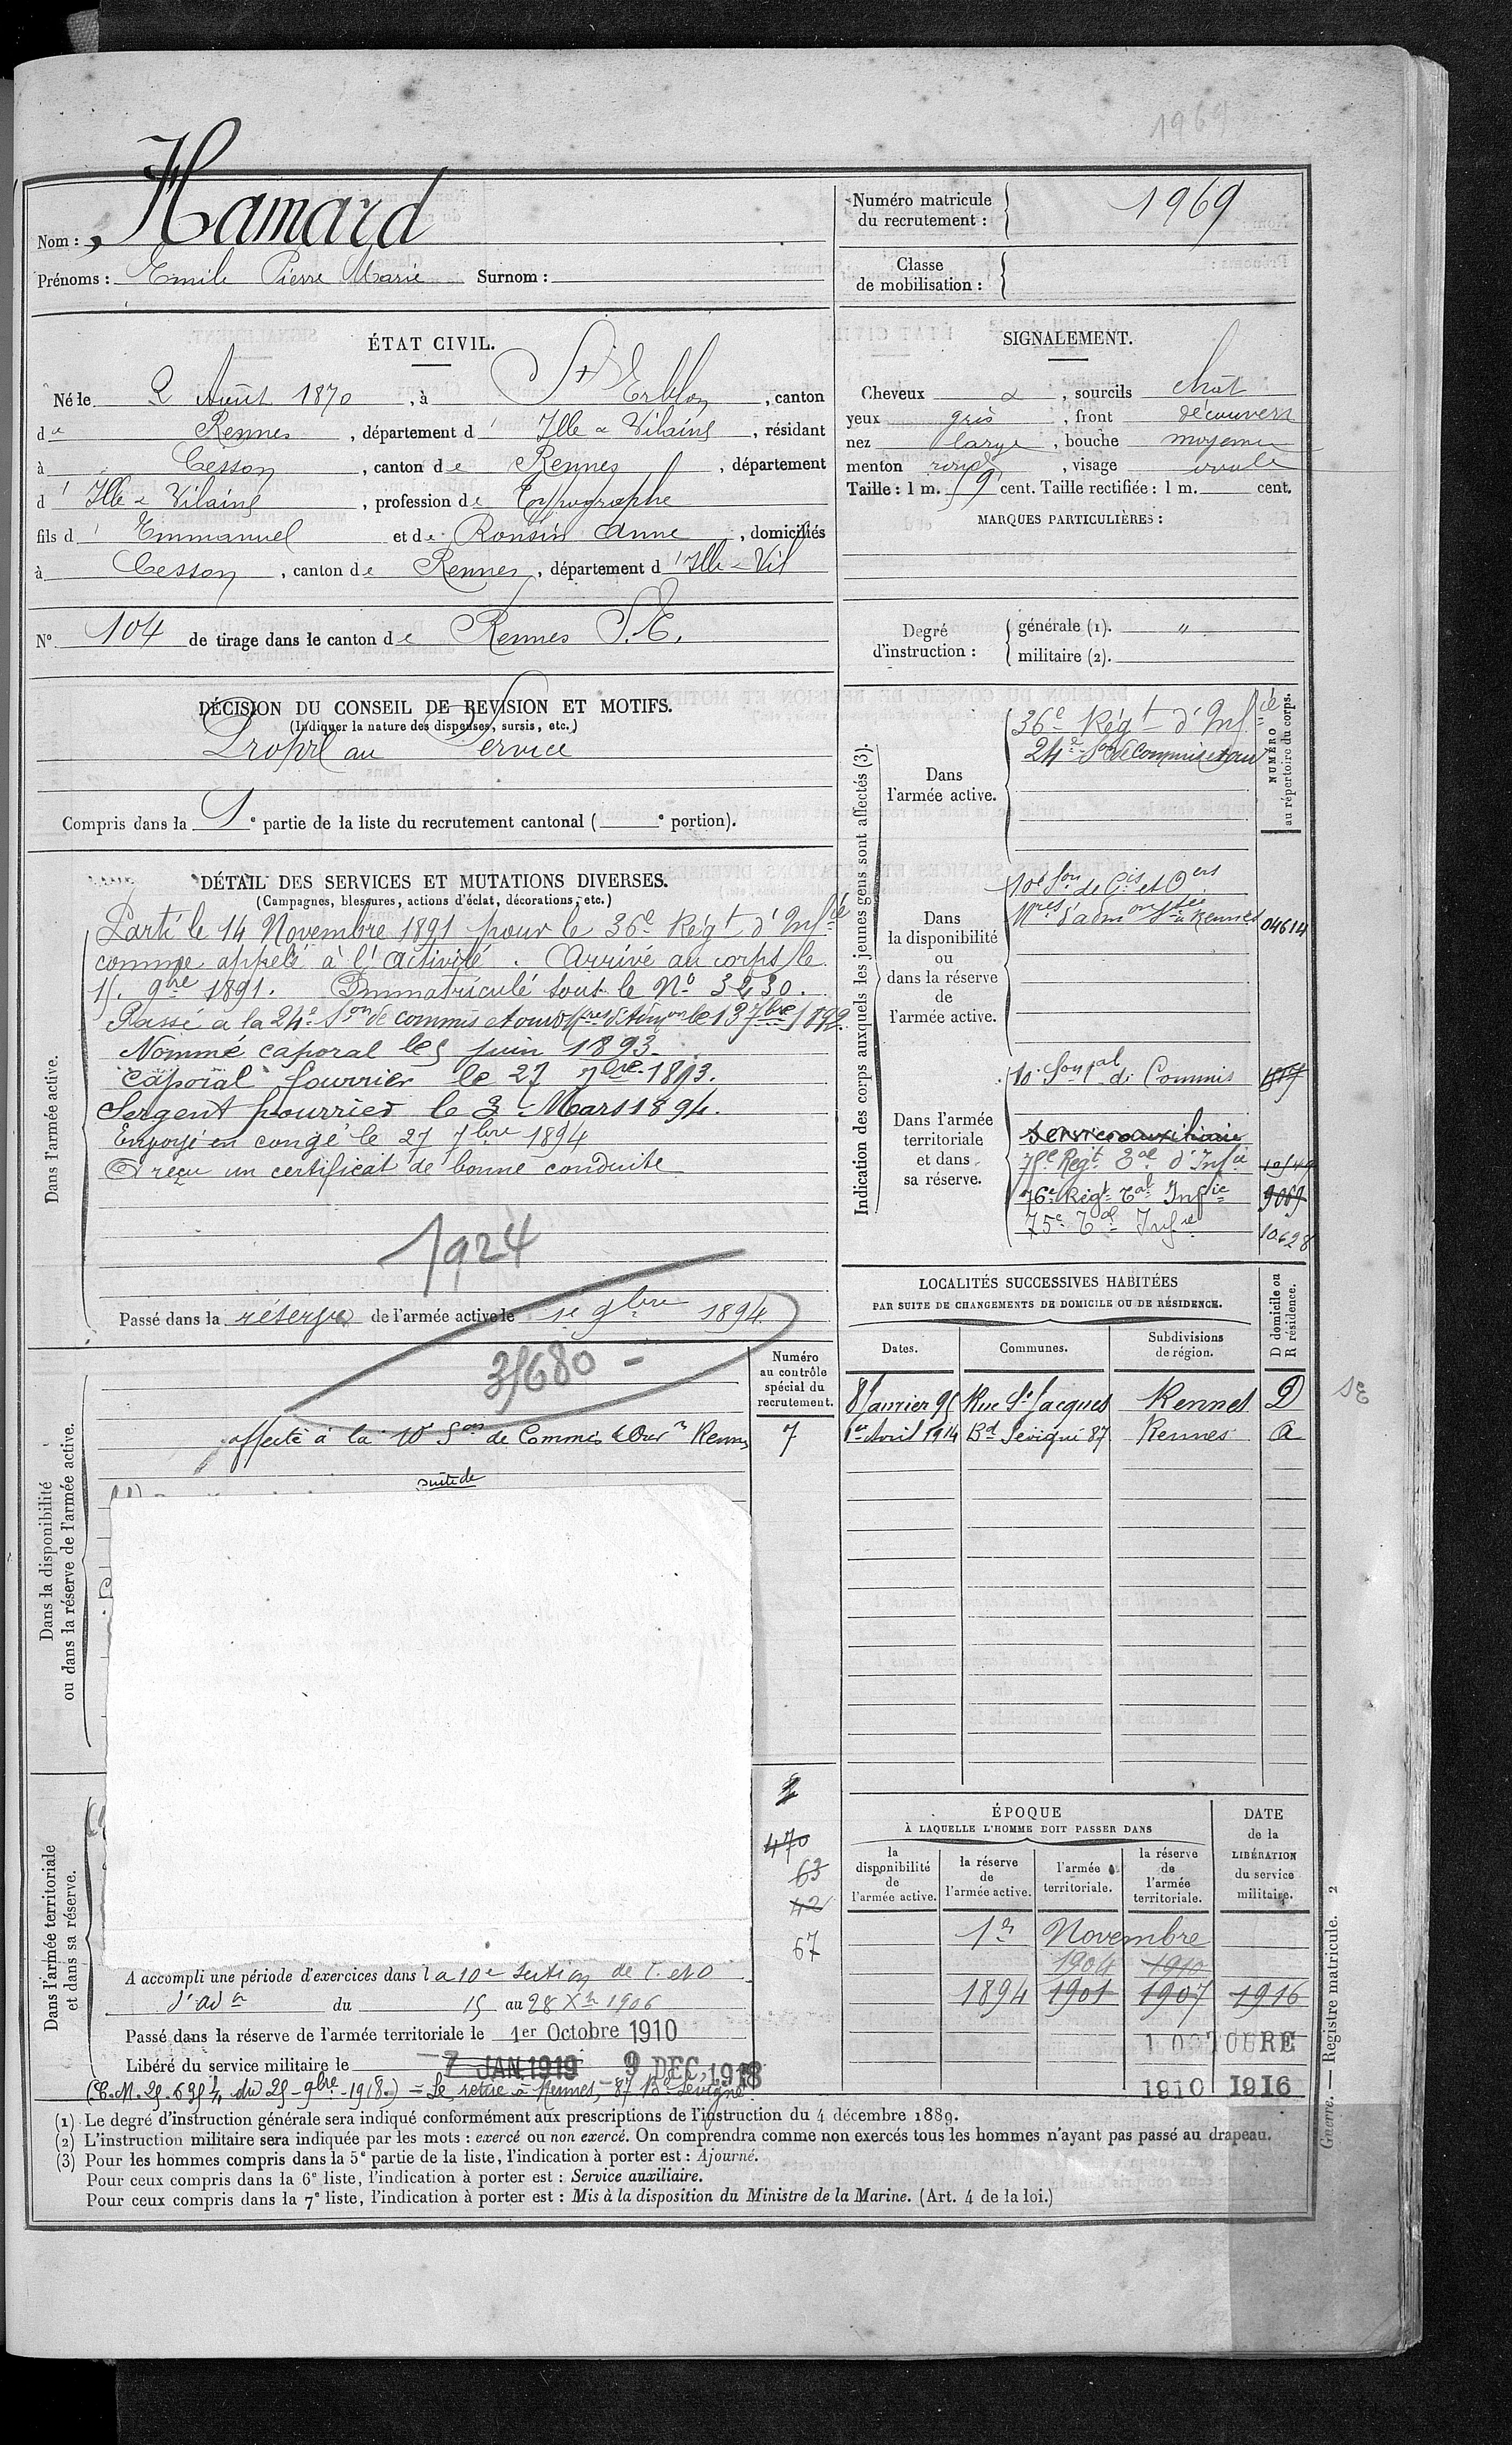 1969
Nom : Hamard
Prénoms : Emile Pierre Marie Surnom :
Numéro matricule du recrutement : 1969
Classe de mobilisation :
ÉTAT CIVIL.
Né le 2 Août 1870, à St Erblon, canton
de Rennes, département d'Ille & Vilaine, résidant
à Cesson, canton de Rennes, département
d'Ille & Vilaine, profession de Typographe
fils d'Emmanuel et de Ronsin Anne, domiciliés
à Cesson, canton de Rennes, département d'Ille & Vil
N° 104 de tirage dans le canton de Rennes S.E.
SIGNALEMENT.
Cheveux &, sourcils chât
yeux gris, front découvert
nez large, bouche moyenne
menton rond, visage ovale
Taille : 1 m. 59 cent. Taille rectifiée : 1 m. cent.
MARQUES PARTICULIÈRES :
Degré d'instruction :
générale (1). "
militaire (2).
DÉCISION DU CONSEIL DE REVISION ET MOTIFS.
(Indiquer la nature des dispenses, sursis, etc.)
Propre au Service
Compris dans la 1e partie de la liste du recrutement cantonal ( e portion).
DÉTAIL DES SERVICES ET MUTATIONS DIVERSES.
(Campagnes, blessures, actions d'éclat, décorations, etc.)
Dans l'armée active.
Parti le 14 Novembre 1891 pour le 36e Régt d'Infie
comme appelé à l'activité. Arrivé au corps le
15. 9bre 1891. Immatriculé sous le N° 3230.
Passé à la 24e Son de commis et ouvers d'Admon le 13 7bre 1892.
Nommé caporal le 5 juin 1893.
Caporal fourrier le 27 7bre 1893.
Sergent fourrier le 3 Mars 1894.
Envoyé en congé le 27 7bre 1894
A reçu un certificat de bonne conduite
1924
Passé dans la réserve de l'armée active le 1er 9bre 1894
35680 -
Indication des corps auxquels les jeunes gens sont affectés (3).
NUMÉRO au répertoire du corps.
Dans l'armée active.
36e Régt d'Infie "
24e Son de Commis et ouv
Dans la disponibilité ou dans la réserve de l'armée active.
10e Son de Cis et Oers
Mres d'admon Stée à Rennes 04614
Dans l'armée territoriale et dans sa réserve.
10e Son tal de Commis
Service auxiliaire
75e Régt Tal d'Infie
76e Régt Tal Infie 9069
75e Tal Infie 10628
LOCALITÉS SUCCESSIVES HABITÉES
PAR SUITE DE CHANGEMENTS DE DOMICILE OU DE RÉSIDENCE.
D domicile ou R résidence.
Dates. Communes. Subdivisions de région.
8 Janvier 95 Rue St Jacques Rennes D
1er Avril 1914 Bd Sévigné 87 Rennes
SE
Dans la disponibilité ou dans la réserve de l'armée active.
Numéro au contrôle spécial du recrutement.
affecté à la 10e Son de Commis & Ouvrs Rennes 7
suite de
2
470
63
42
67
Dans l'armée territoriale et dans sa réserve.
A accompli une période d'exercices dans la 10e Section de C. et O
d'adn du 15 au 28 Xbre 1906
Passé dans la réserve de l'armée territoriale le 1er Octobre 1910
Libéré du service militaire le 7 JAN. 1919 9 DEC. 1918
(C.M. du 25 - 9bre - 1918.) = Se retire à Rennes, 87 Bd Sévigné
ÉPOQUE
À LAQUELLE L'HOMME DOIT PASSER DANS
la disponibilité de l'armée active. la réserve de l'armée active. l'armée territoriale. la réserve de l'armée territoriale.
DATE de la LIBÉRATION du service militaire.
1er Novembre
1904 1910
1894 1901 1907 1916
1 OCTOBRE
1910 1916
(1) Le degré d'instruction générale sera indiqué conformément aux prescriptions de l'instruction du 4 décembre 1889.
(2) L'instruction militaire sera indiquée par les mots : exercé ou non exercé. On comprendra comme non exercés tous les hommes n'ayant pas passé au drapeau.
(3) Pour les hommes compris dans la 5e partie de la liste, l'indication à porter est : Ajourné.
Pour ceux compris dans la 6e liste, l'indication à porter est : Service auxiliaire.
Pour ceux compris dans la 7e liste, l'indication à porter est : Mis à la disposition du Ministre de la Marine. (Art. 4 de la loi.)
Guerre. — Registre matricule. 2